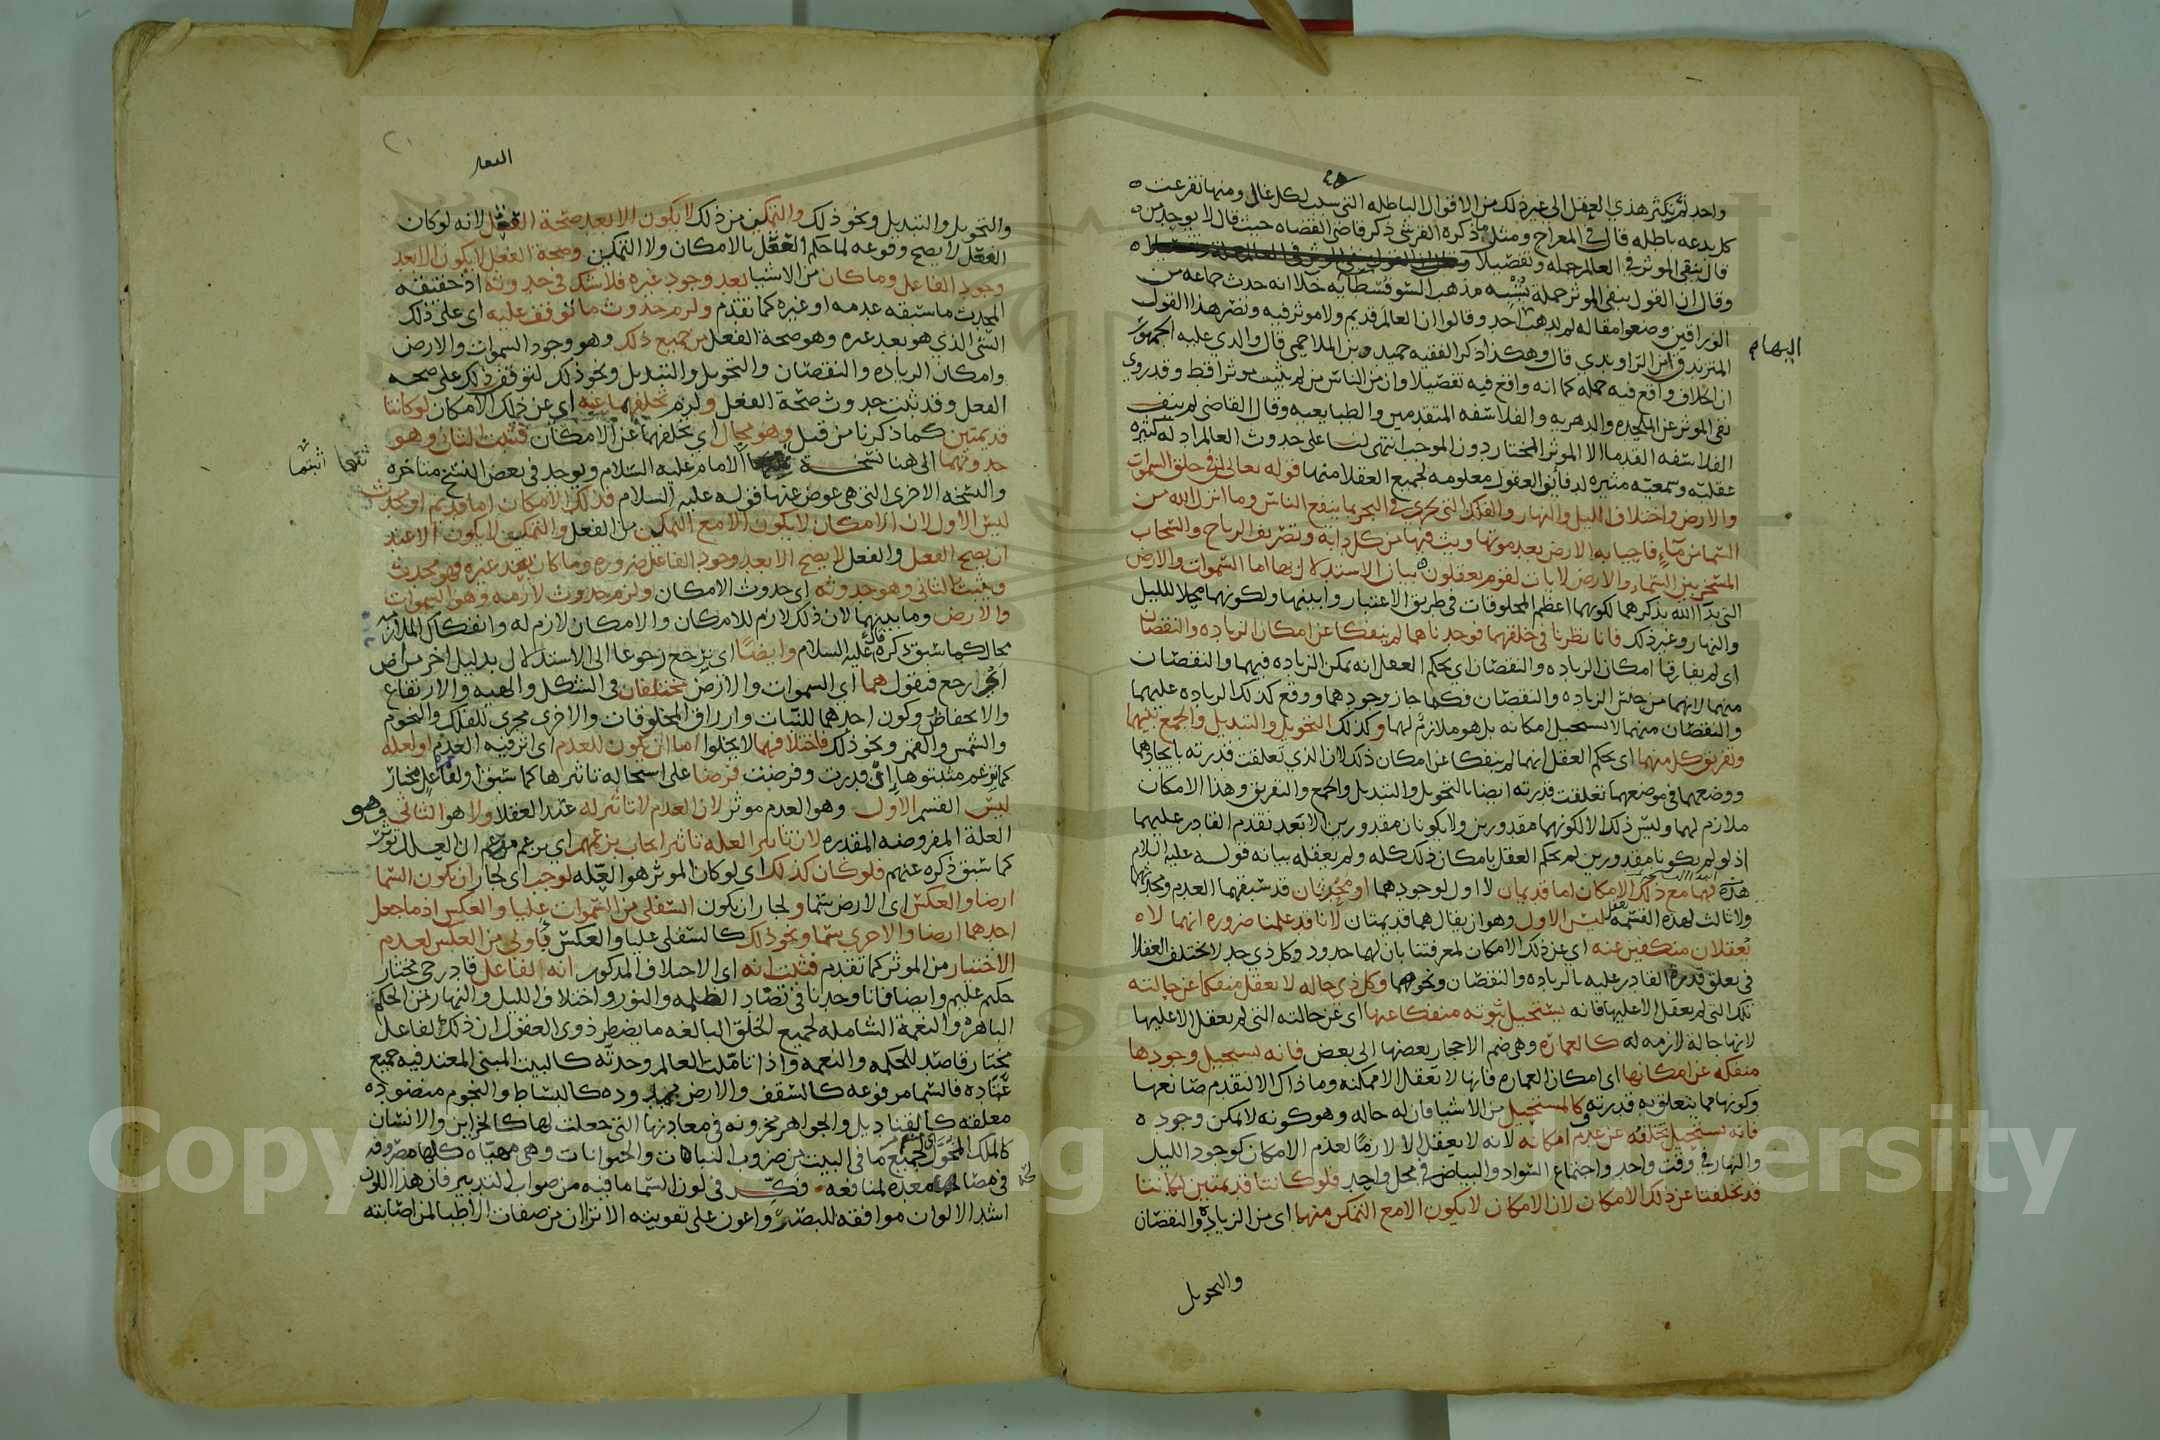 واحد ثم تكثر هذي العقل الى غير ذلك من الاقوال الباطله التي سلب لكل غال ومنها تفرعت
كل بدعه باطله قال في المعراج ومثل ما ذكره القرشي ذكر قاضي القضاه حيث قال لا يوجد من
قال بنفي الموثر في العالم جمله وتفصيلا
وقال ان القول بنفي الموثر جملة يشبه مذهب السوفسطائيه خلا انه حدث جماعه من
الوراقين وضعوا مقاله لم يذهب اليها احد وقالوا ان العالم قديم ولا موثر فيه ونصر هذا القول
المتزندق ابن الراوندي قال وهكذا ذكر الفقيه حميد وبن الملاحمي قال والذي عليه الجمهور
ان الخلاف واقع فيه جمله كما انه واقع فيه تفصيلا وان من الناس من لم يثبت موثرا قط وقد روي
نفي الموثر عن الملحده والدهريه والفلاسفه المتقدمين والطبايعيه وقال القاضي لم ينف
الفلاسفه القدما الا الموثر المختار دون الموجب انتهى لنا على حدوث العالم ادله كثيره
عقليه وسمعيه مثيره لدفائن العقول معلومه لجميع العقلا منها قوله تعالى ان في خلق السموات
والارض واختلاف الليل والنهار والفلك التي تجري في البحر بما ينفع الناس وما انزل الله من
السما من مآء فاحيا به الارض بعد موتها وبث فيها من كل دابة وتصريف الرياح والسحاب
المسخر بين السماء والارض لايات لقوم يعقلون بيان الاستدلال بها اما السموات والارض
التي بدا الله بذكرهما لكونهما اعظم المخلوقات في طريق الاعتبار وابينها ولكونهما محلا لليل
والنهار وغير ذلك فانا نظرنا في خلقهما فوجدناهما لم ينفكا عن امكان الزياده والنقصان
اي لم يفارقا امكان الزياده والنقصان اي يحكم العقل انه يمكن الزياده فيهما والنقصان
منهما لانهما من جنس الزياده والنقصان فكما جاز وجودهما ووقع كذلك الزياده عليهما
والنقصان منهما لا يستحيل امكانه بل هو ملازم لهما وكذلك التحويل والتبديل والجمع بينهما
وتفريق كل منهما اي يحكم العقل انهما لم ينفكا عن امكان ذلك لان الذي تعلقت قدرته بايجادهما
ووضعهما في موضعهما تعلقت قدرته ايضا بالتحويل والتبديل والجمع والتفريق وهذا الامكان
ملازم لهما وليس ذلك الا لكونهما مقدورين ولا يكونان مقدورين الا بعد تقدم القادر عليهما
اذ لو لم يكونا مقدورين لم يحكم العقل بامكان ذلك كله ولم يعقله بيانه قوله عليه السلام
هذه فهما مع ذلك الامكان اما قديمان لا اول لوجودهما او محدثان قد سبقهما العدم
ولا ثالث لهذه القسمه ليس الاول وهو ان يقال هما قديمتان لانا قد علمنا ضروره انهما لا
يعقلان منفكين عنه اي عن ذلك الامكان لمعرفتنا بان لهما حدود وكل ذي حد لا يختلف العقلا
في تعلق قدرة القادر عليه بالزياده والنقصان ونحوهما وكل ذي حاله لا يعقل منفكا عن حالته
تلك التي لم يعقل الا عليها فانه يستحيل ثبوته منفكا عنها اي عن حالته التي لم يعقل الا عليها
لانها حالة لازمه له كالعماره وهي ضم الاحجار بعضها الى بعض فانه يستحيل وجودها
منفكه عن امكانها اي امكان العماره فانها لا تعقل الا ممكنه وما ذاك الا لتقدم صانعها
وكونها مما يتعلق به قدرته وكالمستحيل من الاشيا فان له حاله وهو كونه لا يمكن وجوده
فانه يستحيل تخلفه عن عدم امكانه لانه لا يعقل الا لازما لعدم الامكان كوجود الليل
والنهار في وقت واحد واجتماع السواد والبياض في محل واحد فلو كانتا قديمتين لكانتا
قد تخلفتا عن ذلك الامكان لان الامكان لا يكون الا مع التمكن منهما اي من الزياده والنقصان
والتحويل
والتحويل والتبديل ونحو ذلك والتمكن من ذلك لا يكون الا بعد صحة الفعل لانه لو كان
الفعل لا يصح وقوعه لما حكم العقل بالامكان ولا التمكين وصحة الفعل لا يكون الا بعد
وجود الفاعل وما كان من الاشيا بعد وجود غيره فلا شك في حدوثه اذ حقيقة
المحدث ما سبقه عدمه او غيره كما تقدم ولزم حدوث ما توقف عليه اي على ذلك
الشي الذي هو بعد غيره وهو صحة الفعل من جميع ذلك وهو وجود السموات والارض
وامكان الزياده والنقصان والتحويل والتبديل ونحو ذلك لتوقف ذلك على صحه
الفعل وقد ثبت حدوث صحة الفعل ولزم تخلفهما عنه اي عن ذلك الامكان لو كانتا
قديمتين كما ذكرنا من قبل وهو محال اي تخلفهما عن الامكان فثبت الثاني وهو
حدوثهما الى هنا نسخة الامام عليه السلام ويوجد في بعض النسخ متاخره
والنسخه الاخرى التي هي عوض عنها قوله عليه السلام فذلك الامكان اما قديم او محدث
ليس الاول لان الامكان لا يكون الا مع التمكين من الفعل والتمكين لا يكون الا عند
ان يصح الفعل والفعل لا يصح الا بعد وجود الفاعل ضروره وما كان بعد غيره فهو محدث
فيثبت الثاني وهو حدوثه اي حدوث الامكان ولزم حدوث لازمه وهو السموات
والارض وما بينهما لان ذلك لازم للامكان والامكان لازم له وانفكاك الملازم
محال كما سبق ذكره قال عليه السلام وايضا اي نرجع رجوعا الى الاستدلال بدليل اخر من اض
اذا رجع فنقول هما اي السموات والارض مختلفان في الشكل والهيه والارتفاع
والانخفاض وكون احدهما للنبات وارزاق المخلوقات والاخرى مجرى للفلك والنجوم
والشمس والقمر ونحو ذلك فاختلافهما لا يخلوا اما ان يكون للعدم اي اثر فيه العدم او لعله
كما يزعم مثبتوها اي قدرت وفرضت فرضا على استحاله تاثيرها كما سبق او لفاعل مختار
ليس القسم الاول وهو العدم موثر لان العدم لا تاثير له عند العقلا ولا هو الثاني وهو
العلة المفروضه المقدره لان تاثير العله تاثير ايجاب بزعمهم اي بزعم من زعم ان العلل توثر
كما سبق ذكره عنهم فلو كان كذلك اي لو كان الموثر هو العله لوجب اي لجاز ان يكون السما
ارضا والعكس اي الارض سما ولجاز ان يكون السفلى من السموات عليا والعكس اذ ما جعل
احدهما ارضا والاخرى سما ونحو ذلك كالسفلى عليا والعكس باولى من العكس لعدم
الاختيار من الموثر كما تقدم فثبت انه اي الاختلاف المذكور انه لفاعل قادر حي مختار
حكيم عليم وايضا فانا وجدنا في تضاد الظلمه والنور واختلاف الليل والنهار من الحكم
الباهره والنعمة الشامله لجميع الخلق البالغه ما يضطر ذوي العقول ان ذلك لفاعل
مختار قاصد للحكمه والنعمه واذا تاملت العالم وجدته كالبيت المبني المعد فيه جميع
عتاده فالسما مرفوعه كالسقف والارض ممدوده كالبساط والنجوم منضوده
معلقه كالقناديل والجواهر مخزونه في معادنها التي جعلت لها كالخزاين والانسان
كالملك المخول لجميع ما في البيت من ضروب النباتات والحيوانات وهي مهياه كلها مصروفه
في مصالحه معده لمنافعه فكر في لون السما ما فيه من صواب التدبير فان هذا اللون
اشد الالوان موافقه للبصر واعون على تقويته الا تراان من صفات الاطبا لمن اصابته